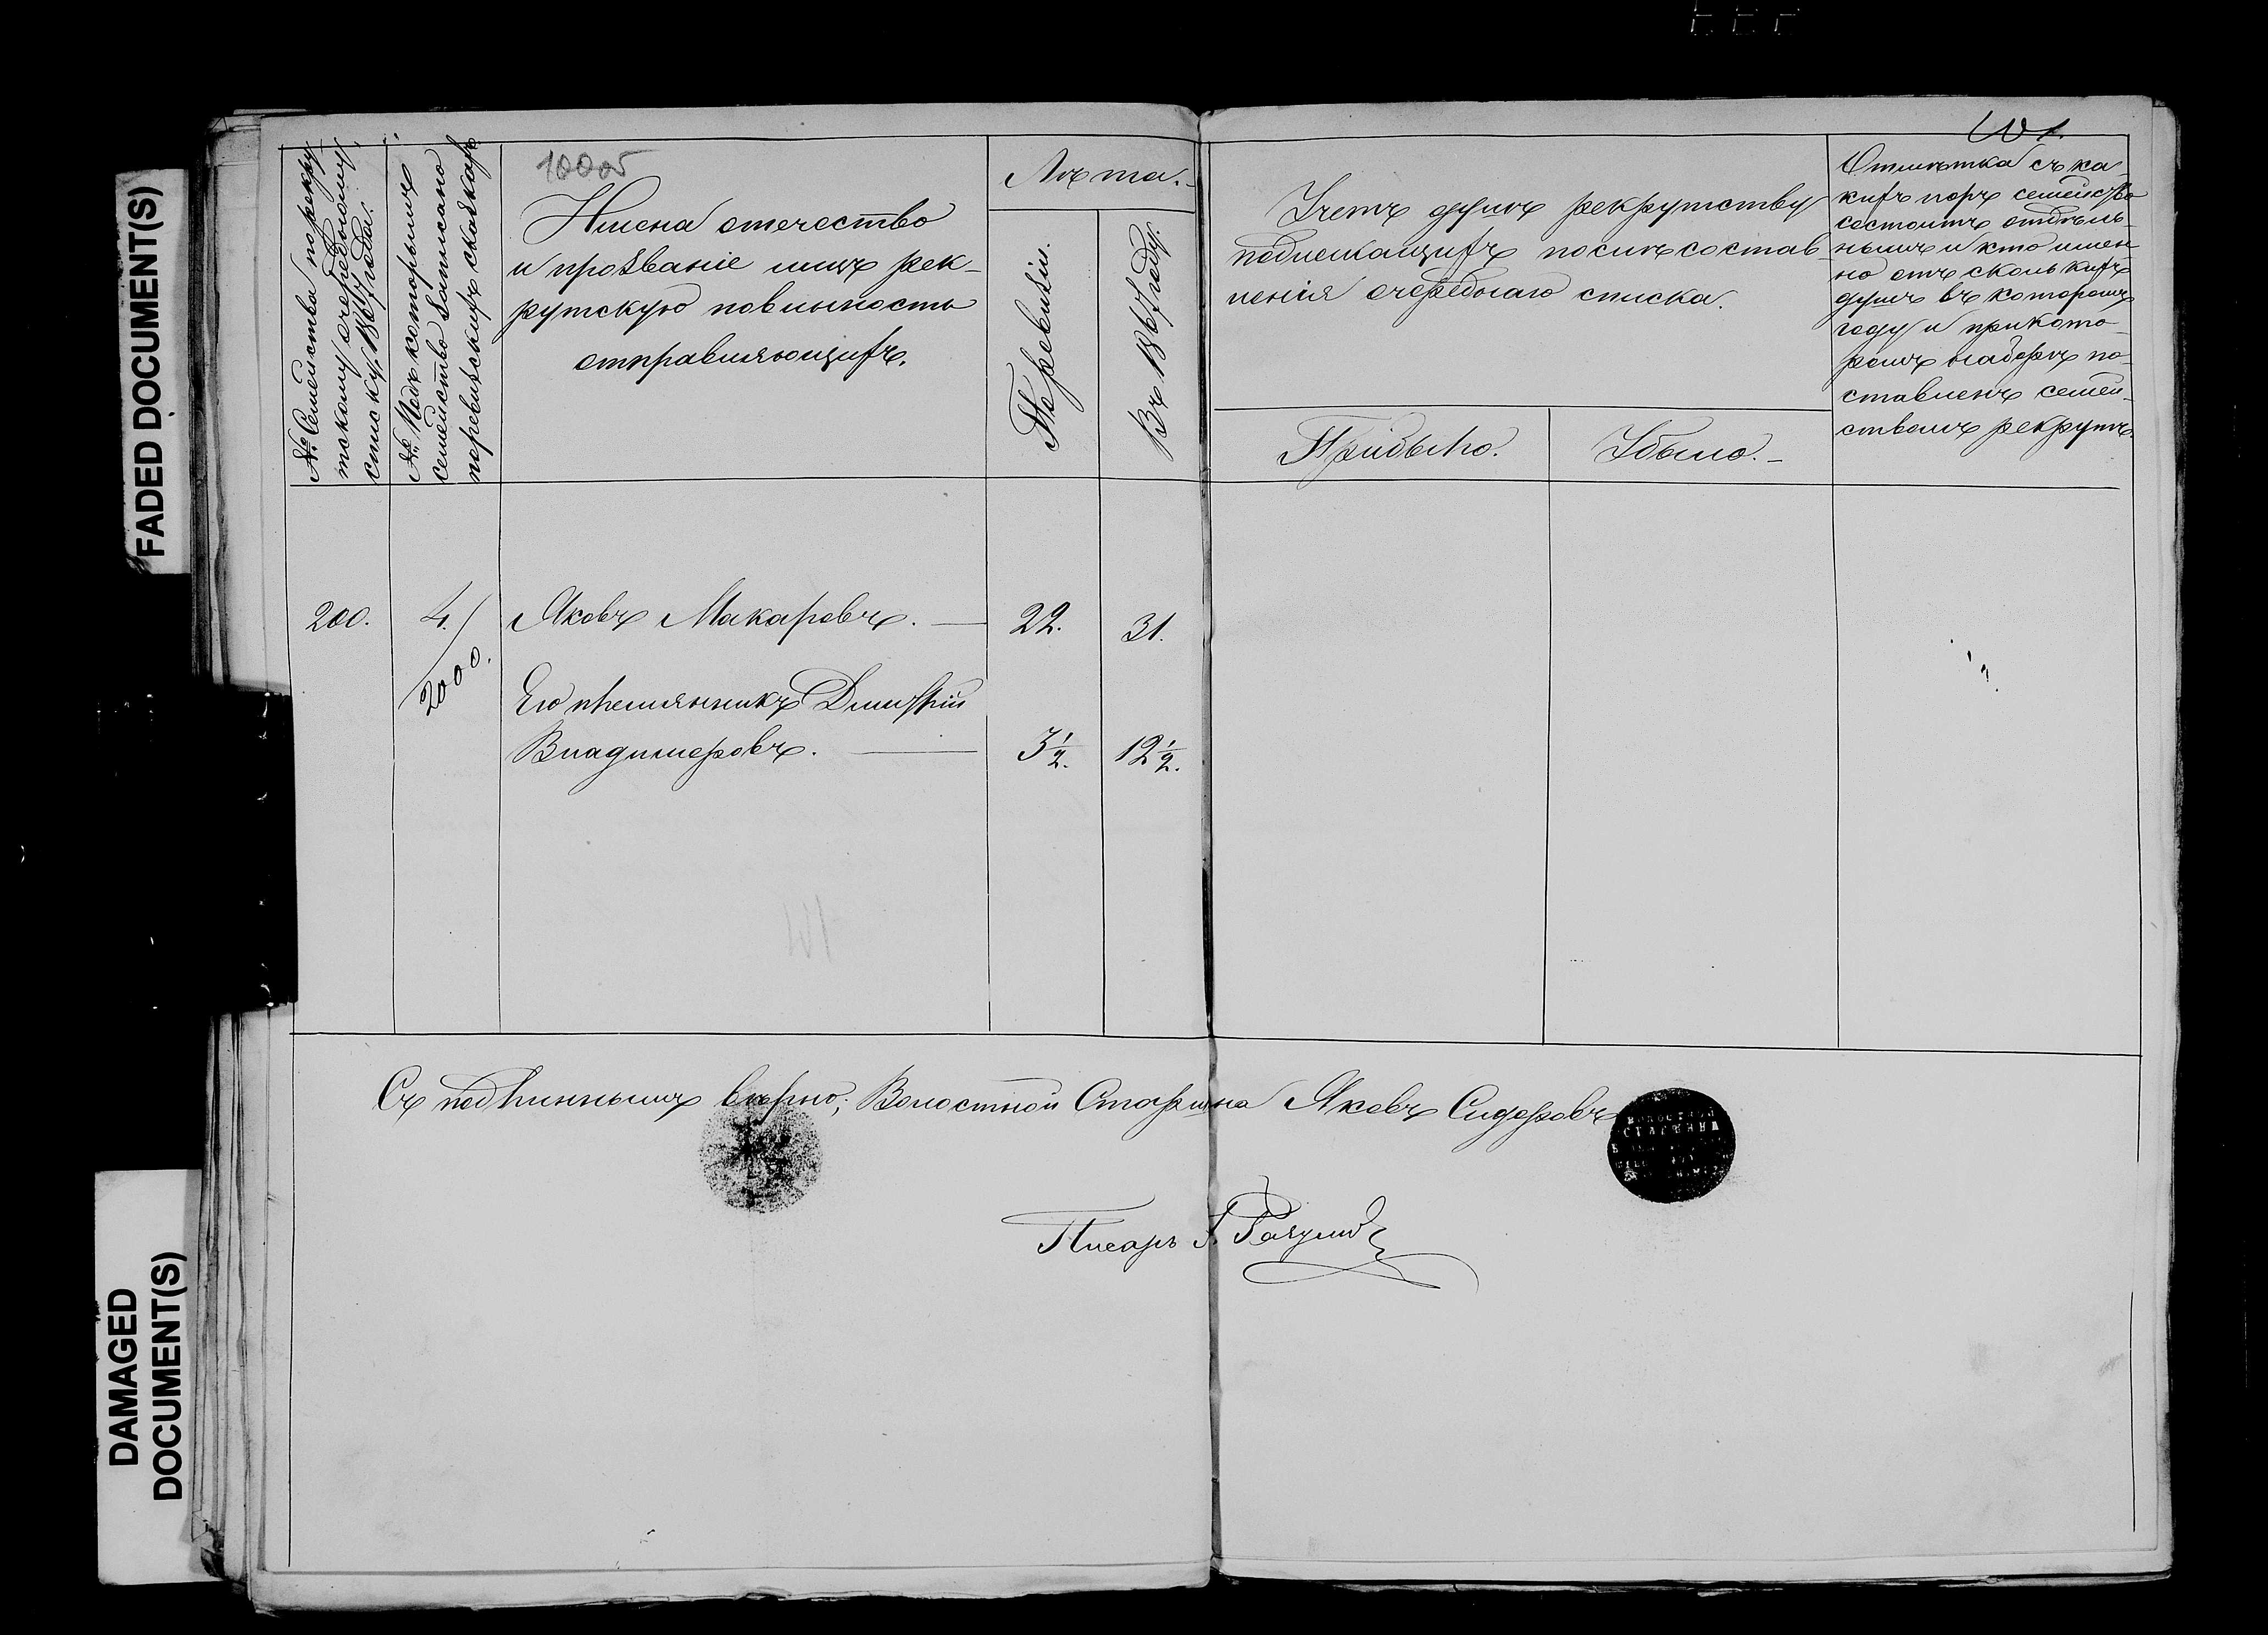 FADED DOCUMENT(S)
DAMAGED
DOCUMENT(S)
№ Семейства по рекру-
тскому очередному
списку, 1867 года.
№ Подъ которымъ
семейство записано
поревизскимъ сказкамъ
1000б
Имена отечество
и прозваніе лицъ рек-
рутскую повинность
отправляющихъ.
Лѣта.
По ревизіи.
Въ 1867 году.
Учетъ душъ рекрутству
подлежащихъ послѣ состав-
ленія очереднаго списка.
Прибыло.
Убыло.
Отмѣтка съ ка-
кихъ поръ семейство
состоитъ отдѣль-
нымъ и кто имен-
но отъ сколькихъ
душъ въ которомъ
году и прикото-
ромъ наборѣ по-
ставленъ семей-
ствомъ рекрутъ.
200. 4./2000. Яковъ Макаровъ. — 22. 31.
Его племянникъ Дмитрій
Владимеровъ. — 3½. 12½.
Съ подлиннымъ вѣрно; Волостной Старшина Яковъ Сидоровъ
ВОЛОСТНОЙ
СТАРШИНА
Писарь